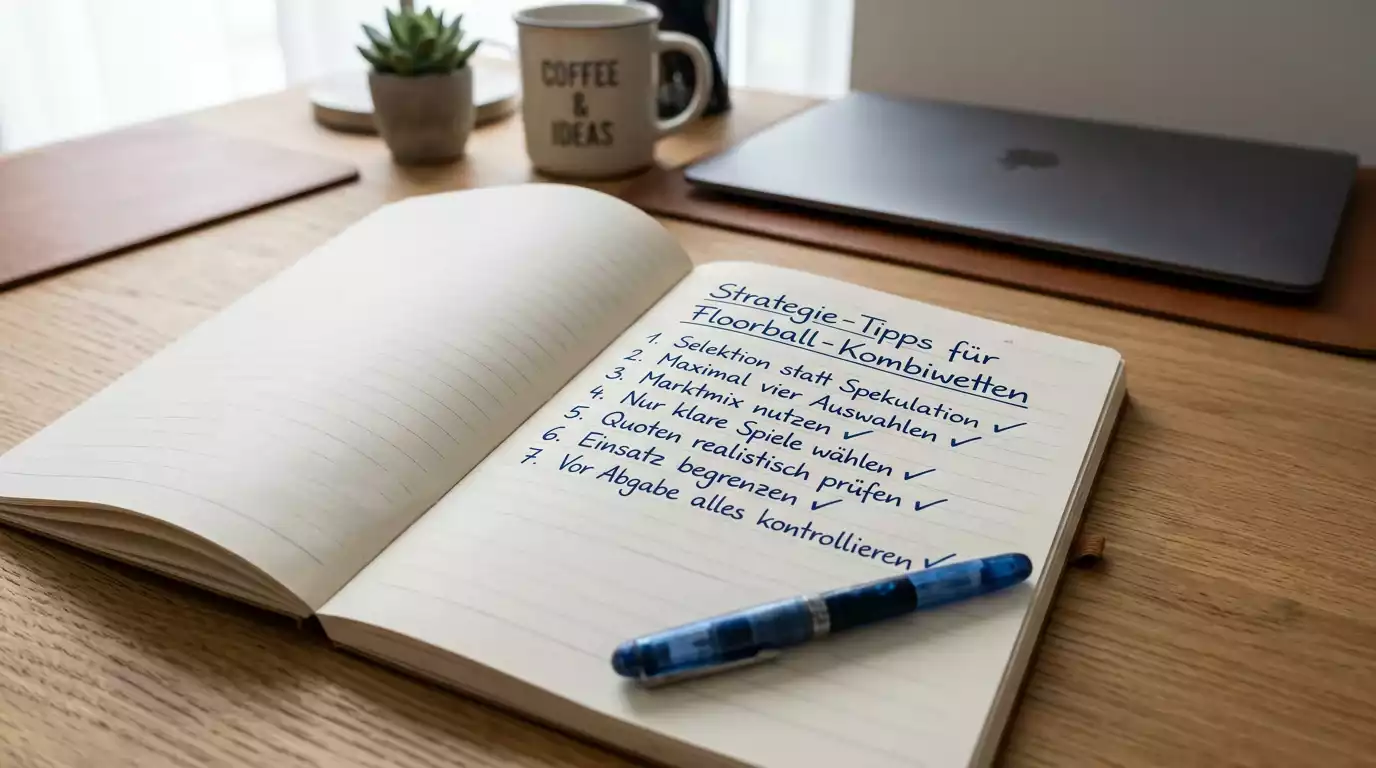 COFFEE
&
IDEAS
Strategie-Tipps für
Floorball-Kombiwetten
1. Selektion statt Spekulation ✓
2. Maximal vier Auswahlen ✓
3. Marktmix nutzen ✓
4. Nur klare Spiele wählen ✓
5. Quoten realistisch prüfen ✓
6. Einsatz begrenzen ✓
7. Vor Abgabe alles kontrollieren ✓